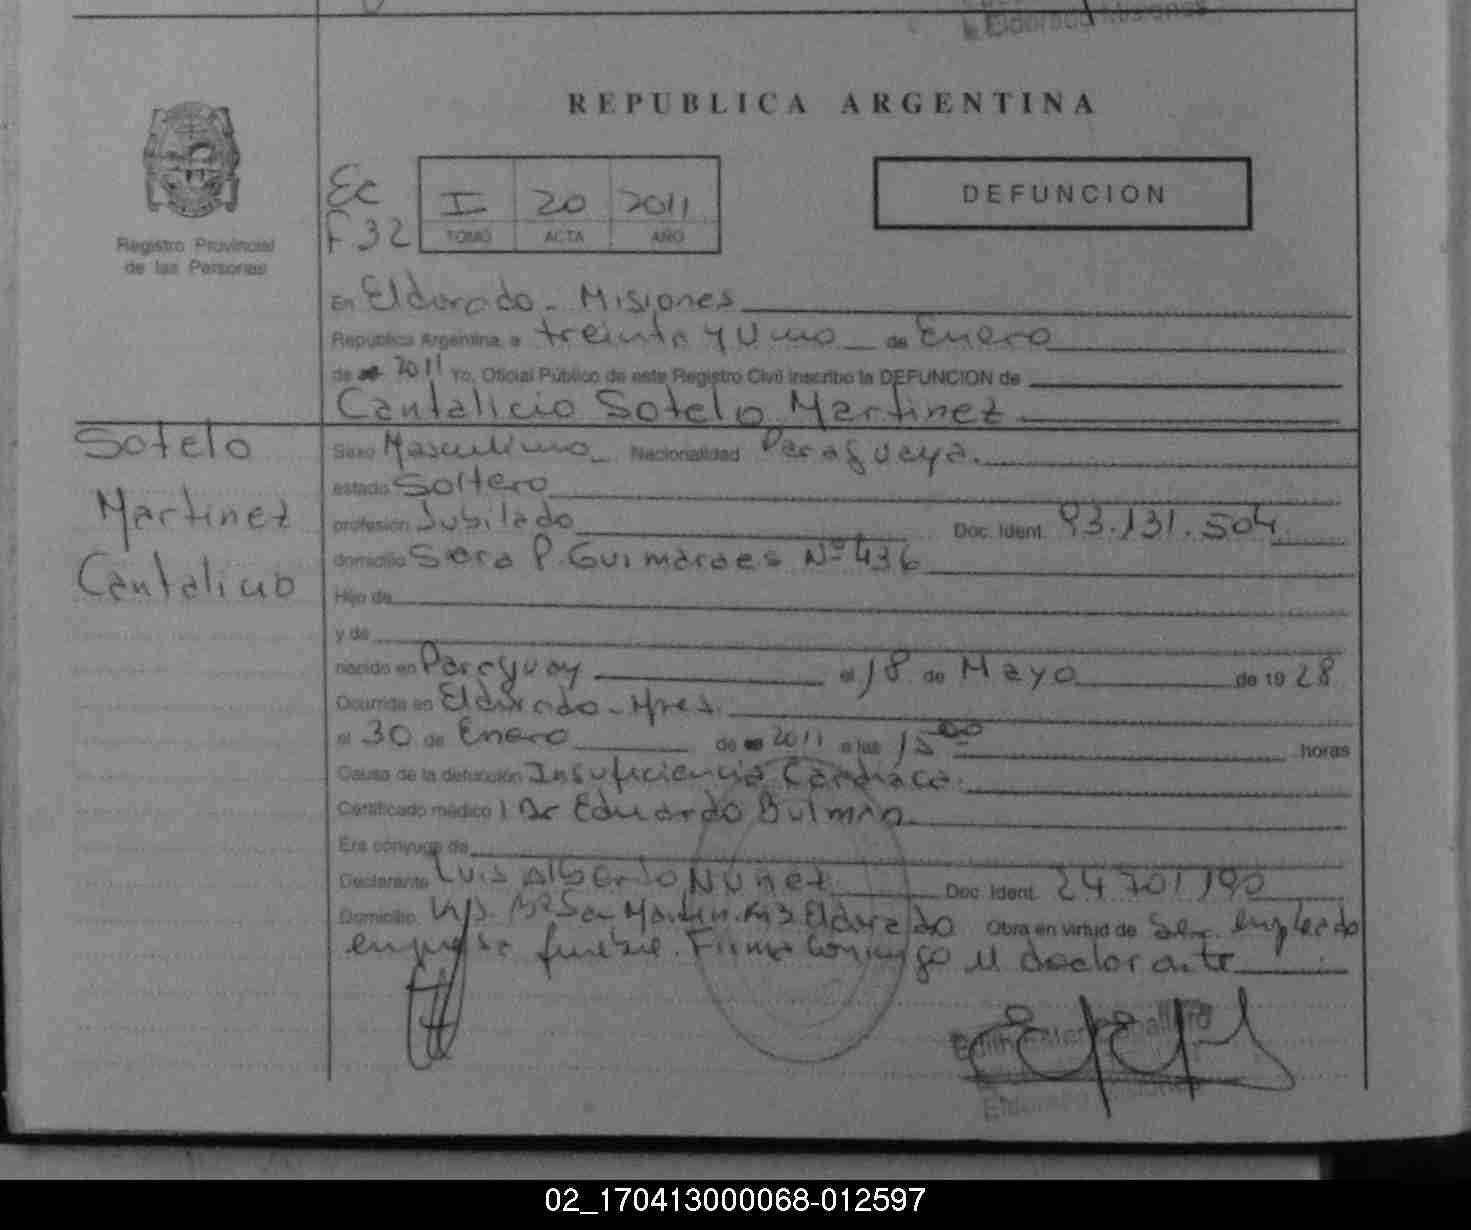 Eldorado Misiones
REPUBLICA ARGENTINA
Registro Provincial
de las Personas
Ec
F.32
I 20 2011
TOMO ACTA AÑO
DEFUNCION
En Eldorado - Misiones
República Argentina, a treinta y Uno de Enero
de 2011 Yo, Oficial Público de este Registro Civil inscribo la DEFUNCION de
Cantalicio Sotelo Martinez
Sotelo
Martinez
Cantalicio
Sexo Masculino Nacionalidad Paraguaya.
estado Soltero
profesión Jubilado Doc. Ident. 93.131.504
domicilio P. Guimaraes Nº 436
Hijo de
y de
nacido en Paraguay el 18 de Mayo de 1928
Ocurrida en Eldorado - Mnes.
el 30 de Enero de 2011 a las 15 00 horas
Causa de la defunción Insuficiencia Cardiaca.
Certificado médico Dr Eduardo Bulman
Era cónyuge de
Declarante Luis Alberto Nuñez Doc. Ident. 24.701.190
Domicilio San Martin Km3 Eldorado Obra en virtud de Ser empleado
empresa funebre. Firma conmigo el declarante
Edith Ester Caballero
Eldorado Misiones
02_170413000068-012597